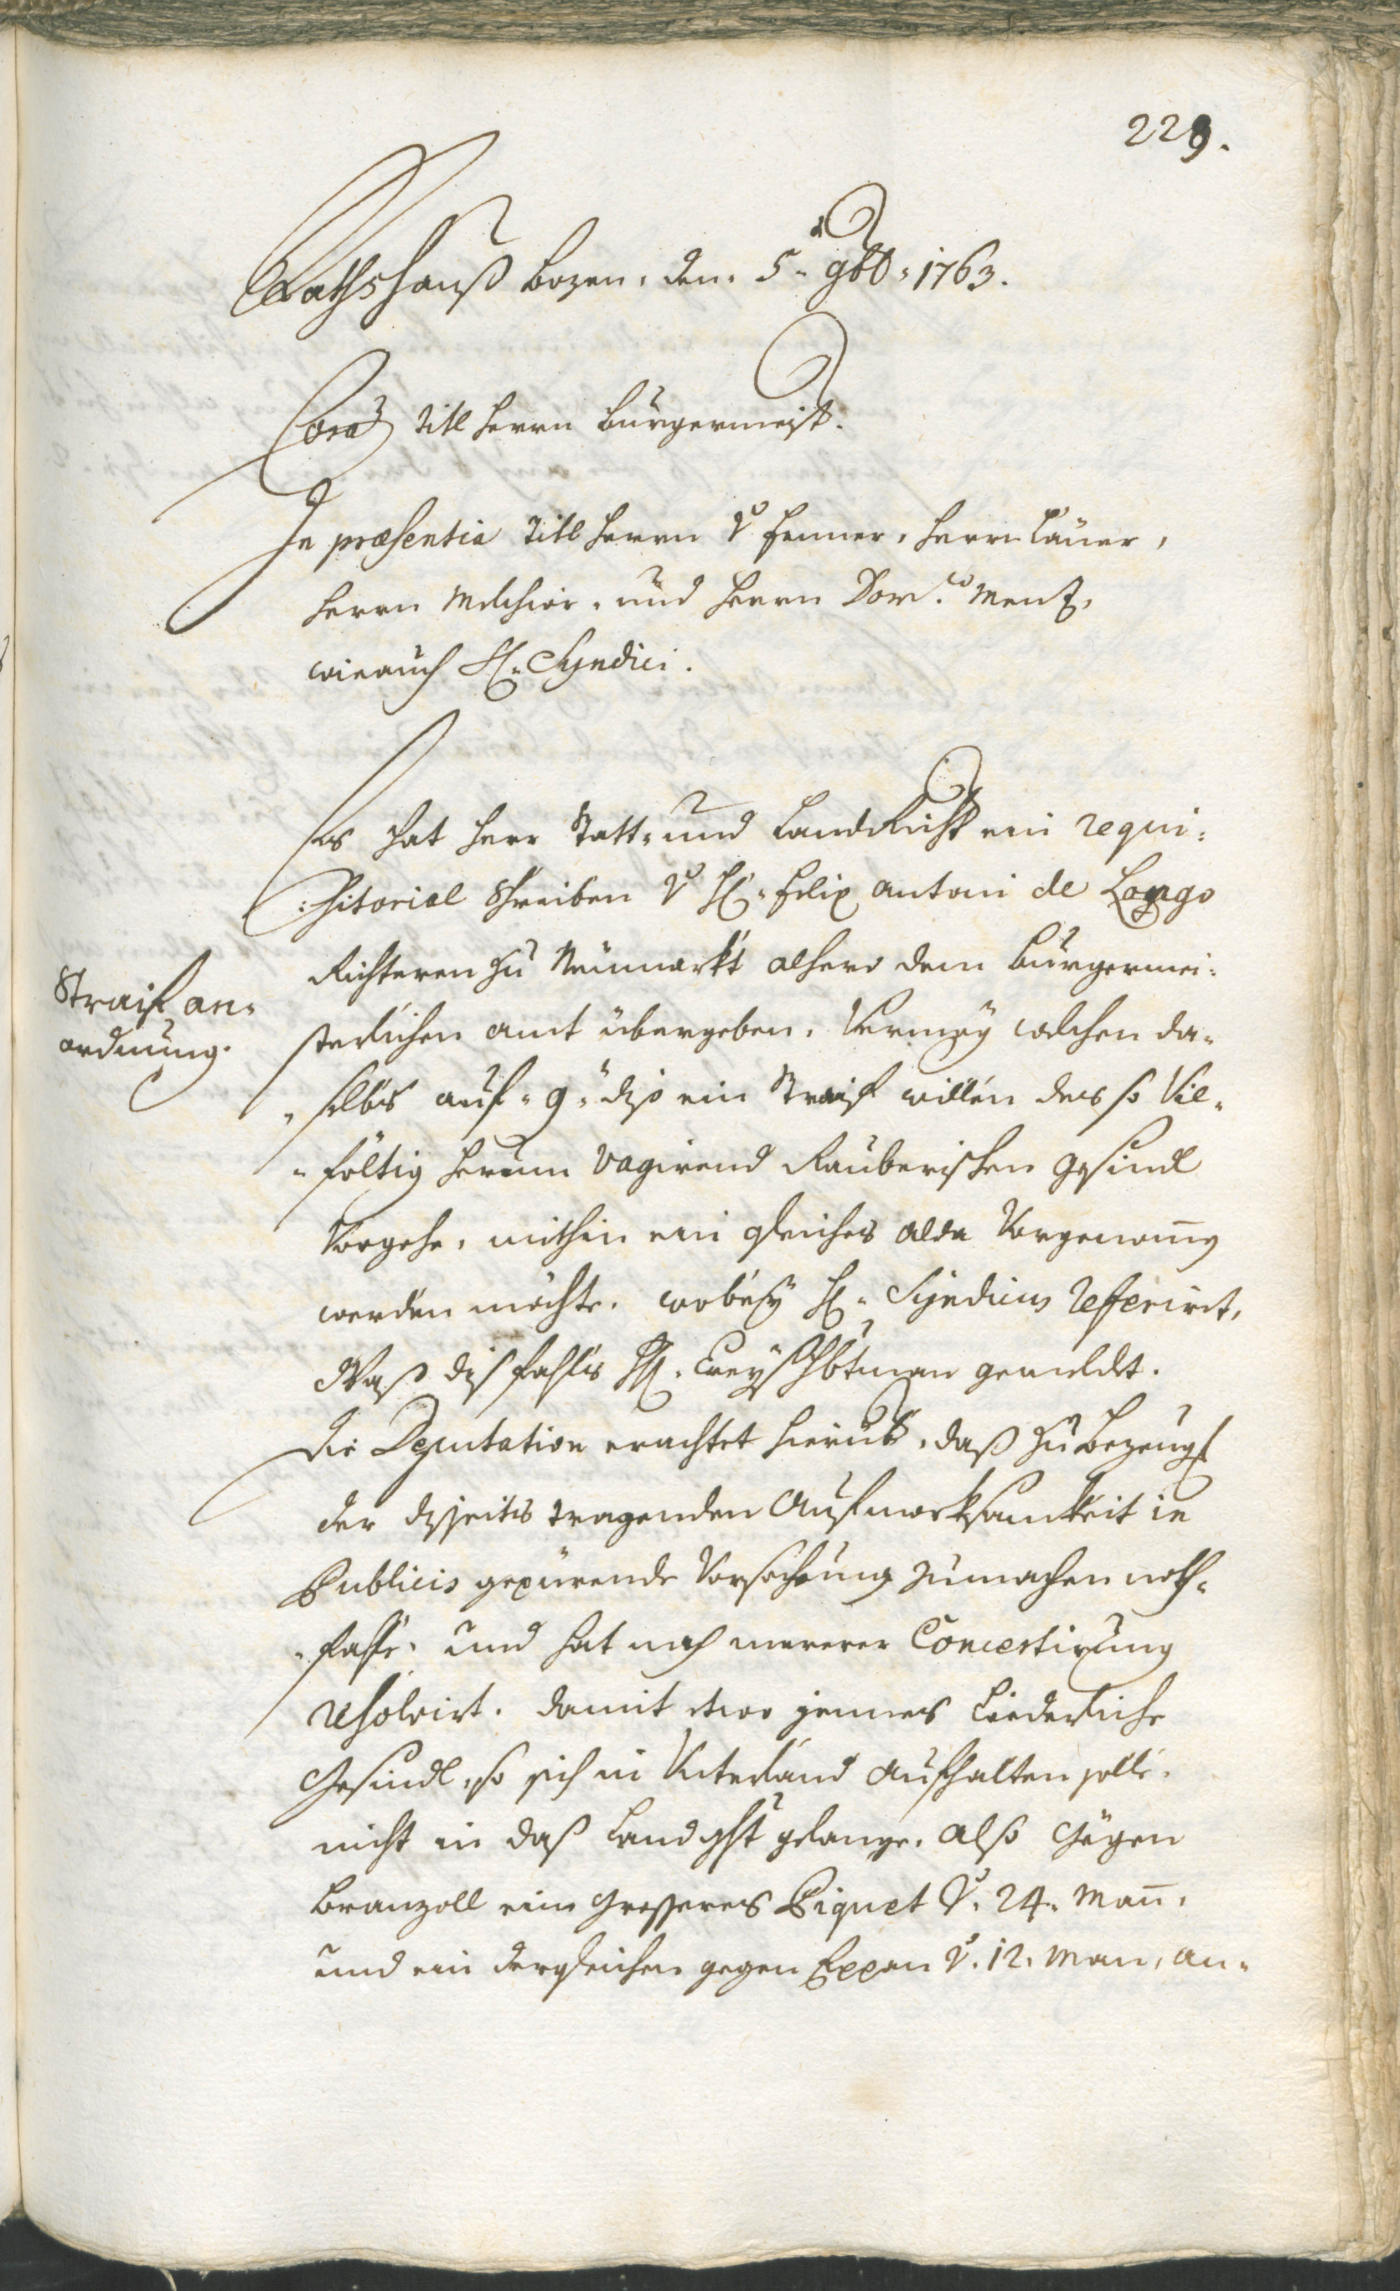 229.
Rathshauß Bozen, den 5. 9bb. 1763.
Cora Titl Herrn Burgermeist.
In præsentia Titl Herrn v Fenner, Herrn Läner,
Herrn Melchior, und Herrn Dom.co Menz,
wie auch H. Syndici.
Es hat Herr Statt- und Landricht ein requi-
:sitorial Schreiben v H. Felix Antoni de Longo
Richteren zu Neumarkt alhero dem Burgermei-
sterlichen Amt übergeben, Vermög welchen da-
selbs auf 9. diß ein Straif willen des so Vil-
fältig herum vagirend Rauberischen Gesindl
Vorgehe, mithin ein gleiches alda Vorgenommen
werden möchte. wobey H. Syndicus Referirt,
Waß disfahls H. Creyshbtman gemeldt.
Die Deputation erachtet hierüb, daß zu bezeug
der disseits tragenden Aufmerksamkeit in
Publicis gezürende Vorsechung zumachen noth-
falle, und hat nach mererer Concertirung
resolvirt, damit etwo jennes Liederliche
Gesindl, so sich in Unterland Aufhalten solle,
nicht in daß Landght gelange, also Gegen
Branzoll ein Grosseres Piquet v. 24. Man,
und ein dergleichen gegen Eppan v. 12. Man, an-
Straif an-
ordnung.